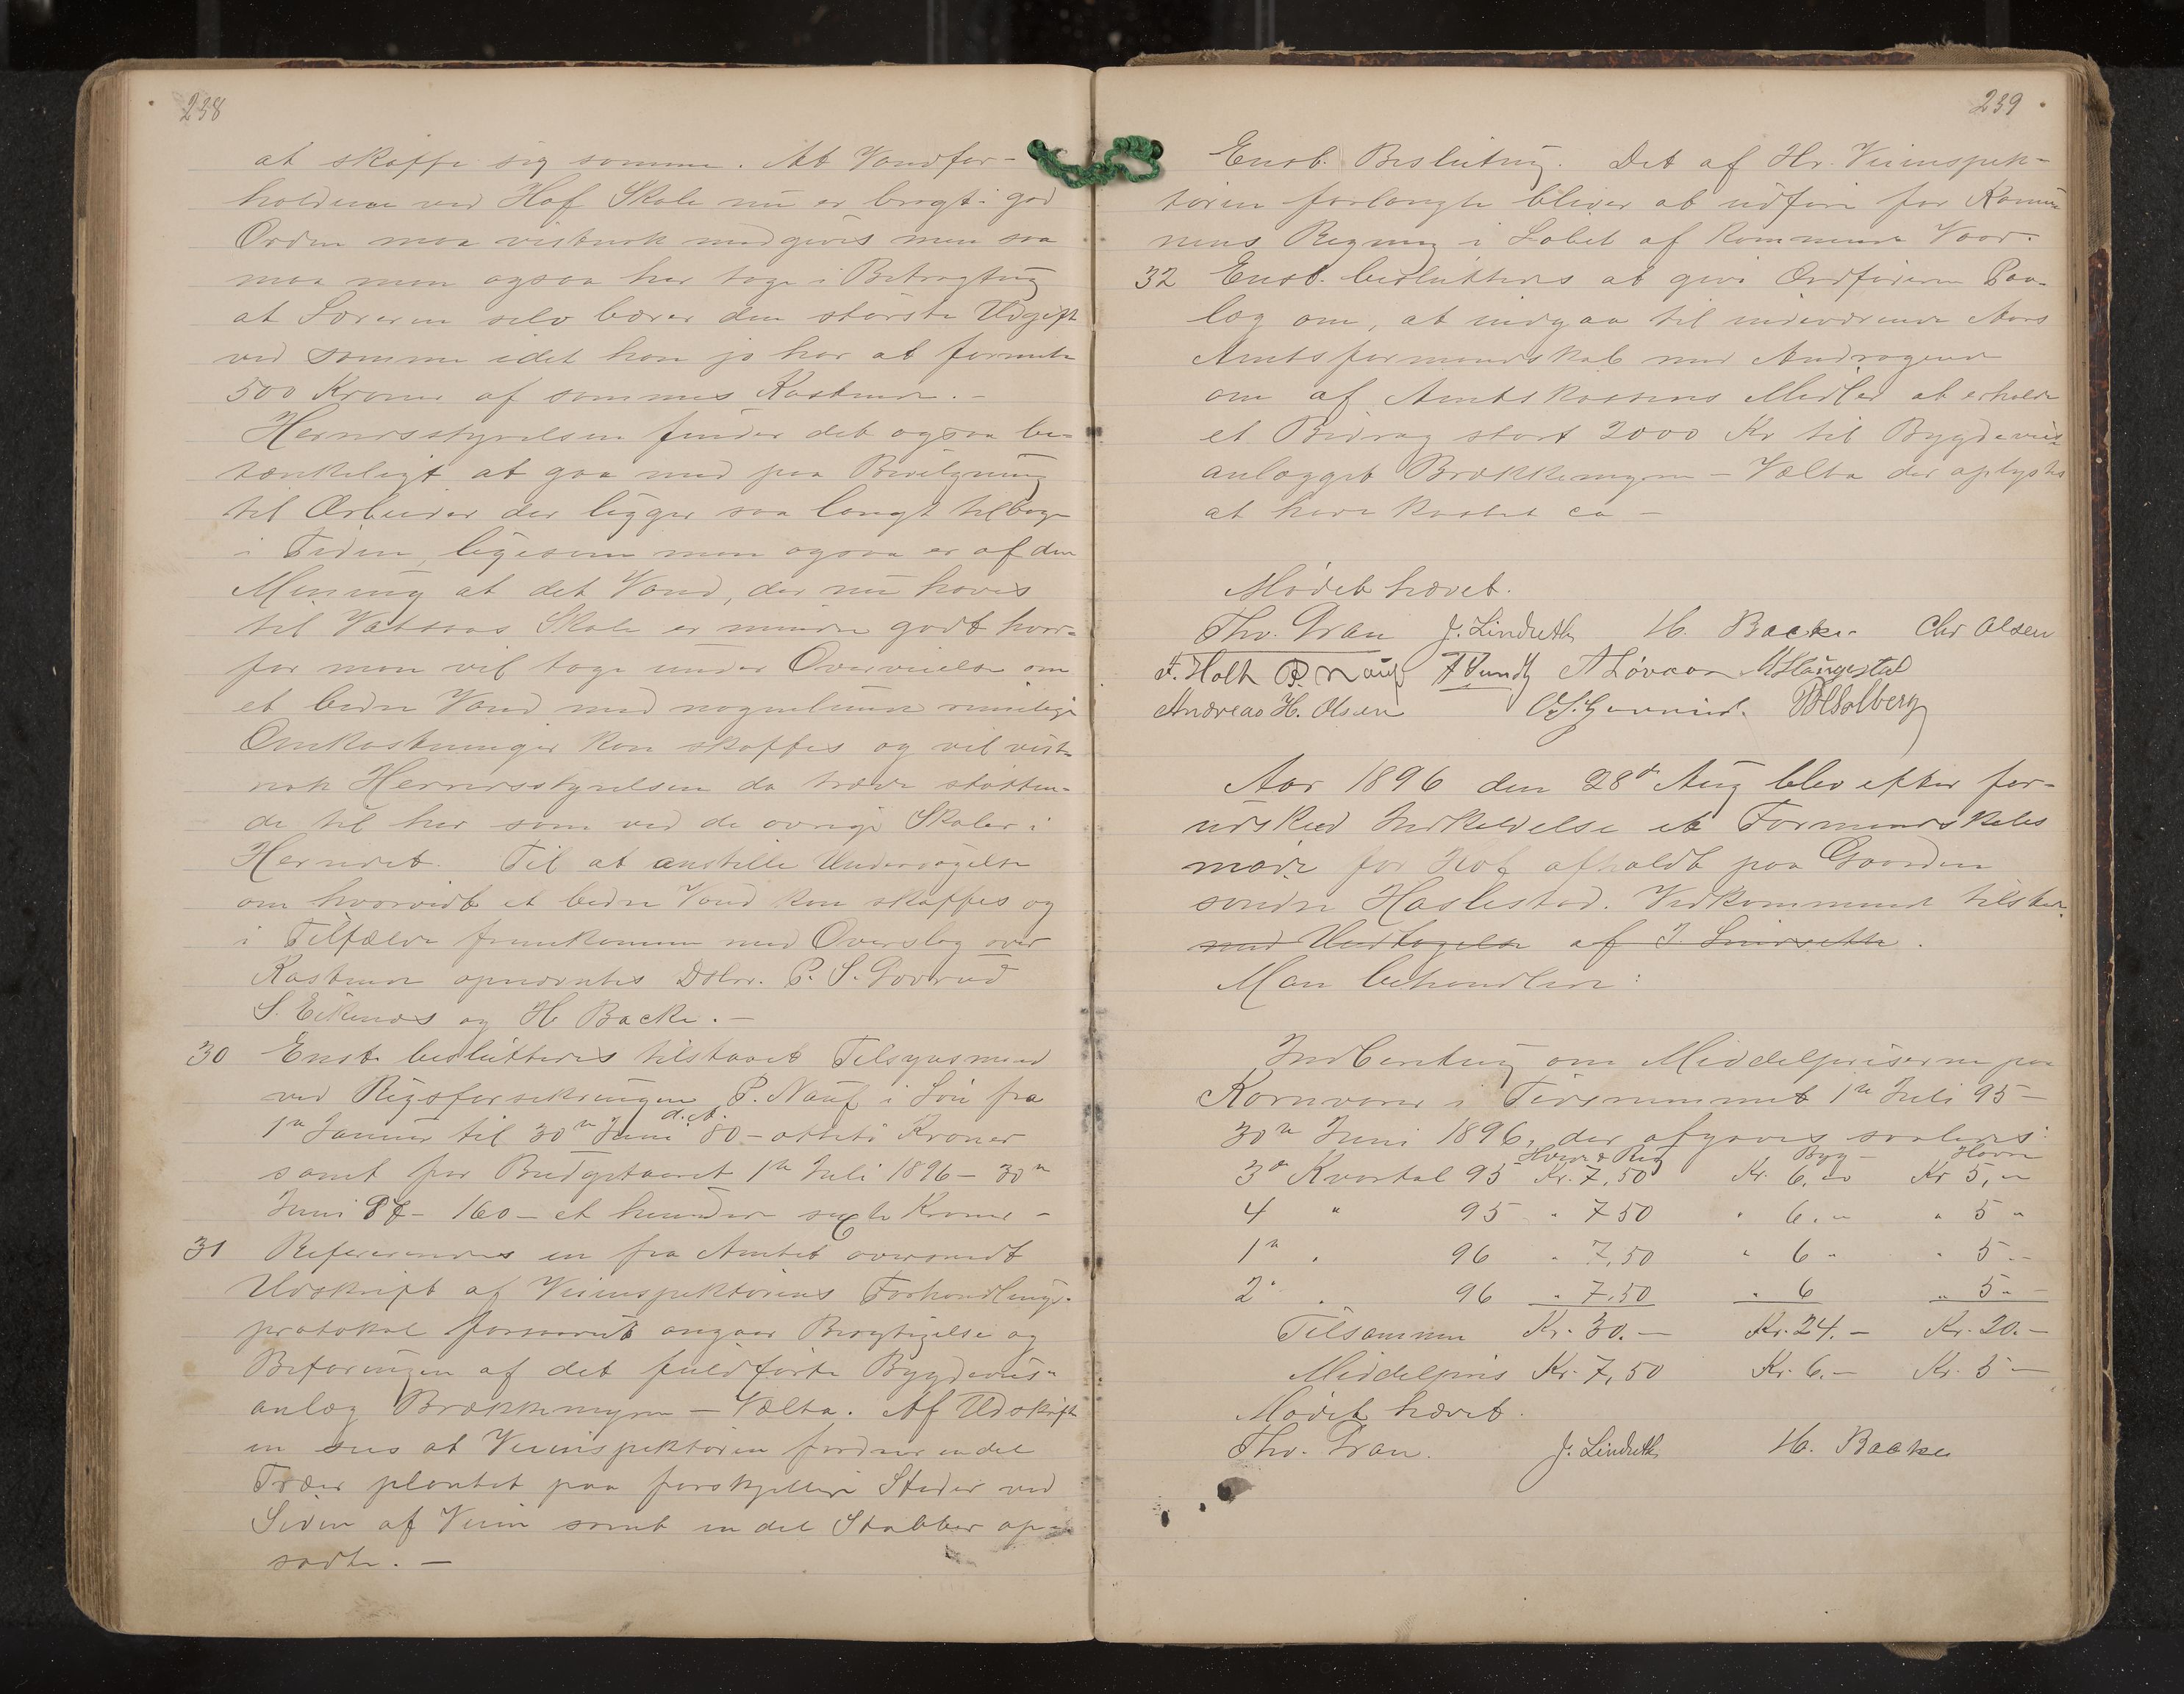 238
at skaffe sig samme. At Vandfor-
holdene ved Hof Skole nu er bragt i god
Orden maa vistnok medgives men saa
maa man ogsaa her tage i Betragtning
at Læreren selv bærer den største Udgift
ved samme idet han jo har at forrente
500 Kroner af sammes Kostende.-
Herredsstyrelsen finder det ogsaa be-
tænkeligt at gaa med paa Bevilgning
til Arbeider der ligger saa langt tilbage
i Tiden, ligesom man ogsaa er af den
Mening at det Vand, der nu haves
til Vataas Skole er mindre godt hvor-
for man vil tage under Overveielse om
et bedre Vand med nogenlunde rimelige
Omkostninger kan skaffes og vil vist-
nok Herredsstyrelsen da træde støtten-
de til her som ved de øvrige Skoler i
Herredet. Til at anstille Undersøgelse
om hvorvidt et bedre Vand kan skaffes og
i Tilfælde fremkomme med Overslag over
Kostende opnævntes Dhrr. P. S.
S. Eikenæs og H Backe.-
30 Enst. besluttedes tilstaaet Tilsynsmand
ved Rigsforsikringen P. Nauf i Løn fra
1ste Januar til 30te Juni d.A. 80- otteti Kroner
samt for Budgetaaret 1ste Juli 1896 - 30te
Juni 97- 160- et hundre sexti Kroner -
31 Refereredes en fra Amtet oversendt
Udskrift af Veiinspektørens Forhandlings-
protokol angaar Besigtigelse og
Befaringen af det fuldførte Bygdeveis-
anlæg Brækkemyren - Vælta. Af Udskrift
en sees at Veiinspektøren fordrer endel
Træer plantet paa forskjellige Steder ved
Siden af Veien samt en del Stabber op-
satte. -
239
Enst. Beslutning. Det af Hr. Veiinspek-
tøren forlangte bliver at udføre for Kommu-
nens Regning i Løbet af kommende Vaar.
32 Enst. besluttedes at give Ordføreren Paa-
læg om, at indgaa til indeværende Aars
Amtsformandskab med Andragende
om af Amtskassens Midler at erholde
et Bidrag stort 2000 Kr til Bygdeveis-
anlægget Brækkemyren - Vælta der oplystes
at have kostet ca -
Mødet hævet.
Thv. Gran J. Lindseth H. Backe Chr Olsen
F. Holt P. Nauf A Løvaas
Andreas H. Olsen Solberg
Aar 1896 den 28de Aug blev efter for-
udskeed Indkaldelse et Formandskabs
møde for Hof afholdt paa Gaarden
søndre Haslestad. Vedkommende tilstede
med Undtagelse af J. Lindseth.
Man behandlede:
Indberetning om Middelpriserne paa
Kornvarer i Tidsrummet 1ste Juli 95-
30te Juni 1896, der afgaves saaledes:
Hvede & Rug Byg - Havre
3de Kvartal 95 Kr. 7,50 Kr. 6,00 Kr 5,"
4 " 95 " 7 50 " 6." " 5 "
1ste " 96 " 7,50 " 6 " " 5.-
2. " 96 " 7,50 " 6 " 5 "-
Tilsammen Kr. 30.- Kr. 24.- Kr. 20.-
Middelpris Kr. 7,50 Kr. 6.- Kr. 5 -
Mødet hævet.
Thv. Gran. J. Lindseth H. Backe